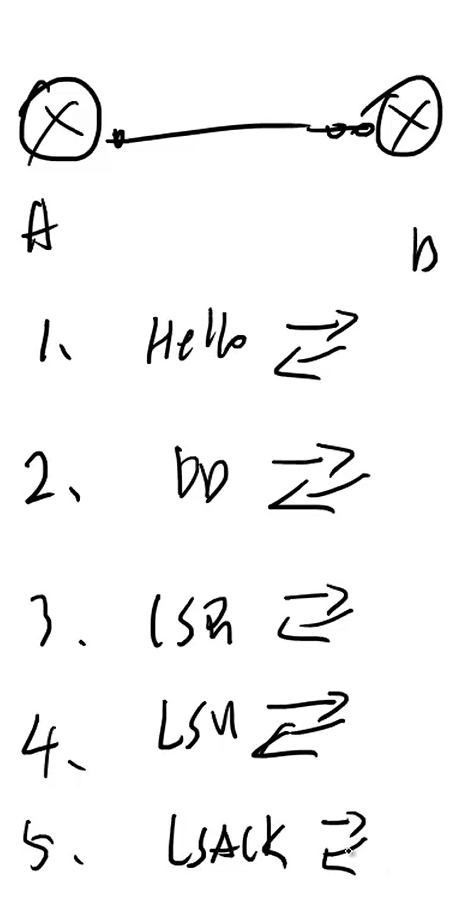 A
b
1、 Hello
2、 DD
3. LSR
4、 LSU
5. LSACK